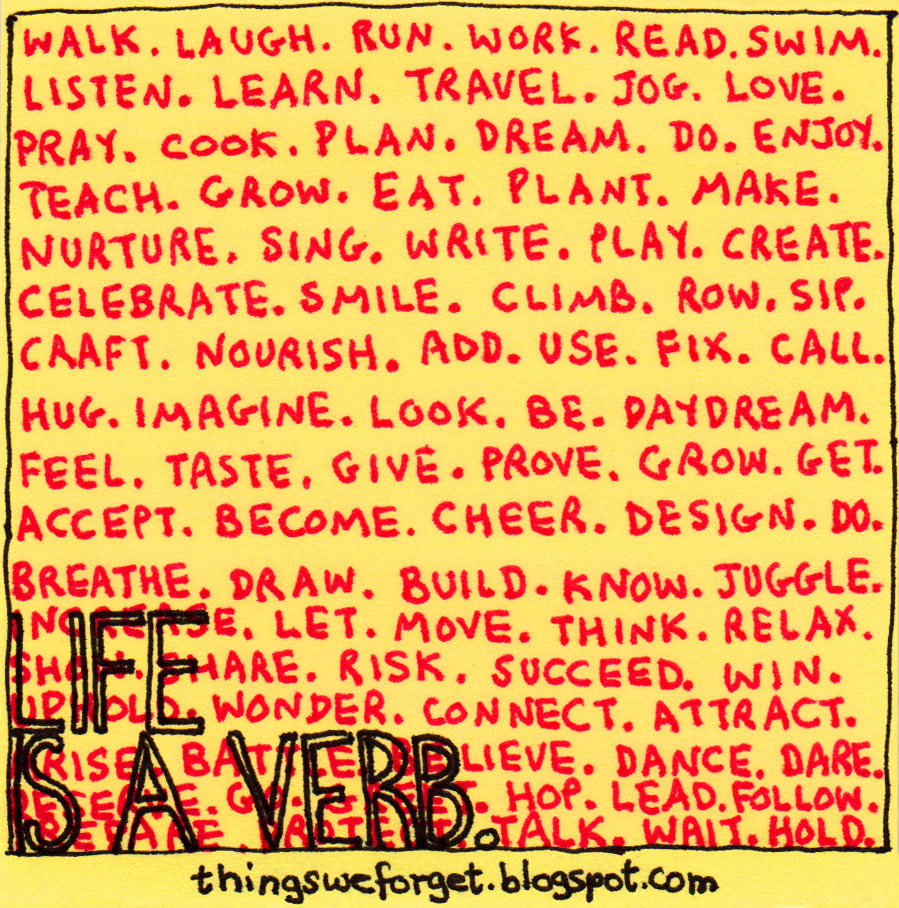 WALK. LAUGH. RUN. WORK. READ. SWIM.
LISTEN. LEARN. TRAVEL. JOG. LOVE.
PRAY. COOK. PLAN. DREAM. DO. ENJOY.
TEACH. GROW. EAT. PLANT. MAKE.
NURTURE. SING. WRITE. PLAY. CREATE.
CELEBRATE. SMILE. CLIMB. ROW. SIP.
CRAFT. NOURISH. ADD. USE. FIX. CALL.
HUG. IMAGINE. LOOK. BE. DAYDREAM.
FEEL. TASTE. GIVE. PROVE. GROW. GET.
ACCEPT. BECOME. CHEER. DESIGN. DO.
BREATHE. DRAW. BUILD. KNOW. JUGGLE.
INCREASE. LET. MOVE. THINK. RELAX.
SHARE. RISK. SUCCEED. WIN.
UPHOLD. WONDER. CONNECT. ATTRACT.
BELIEVE. DANCE. DARE.
HOP. LEAD. FOLLOW.
TALK. WAIT. HOLD.
LIFE
IS A VERB.
thingsweforget.blogspot.com